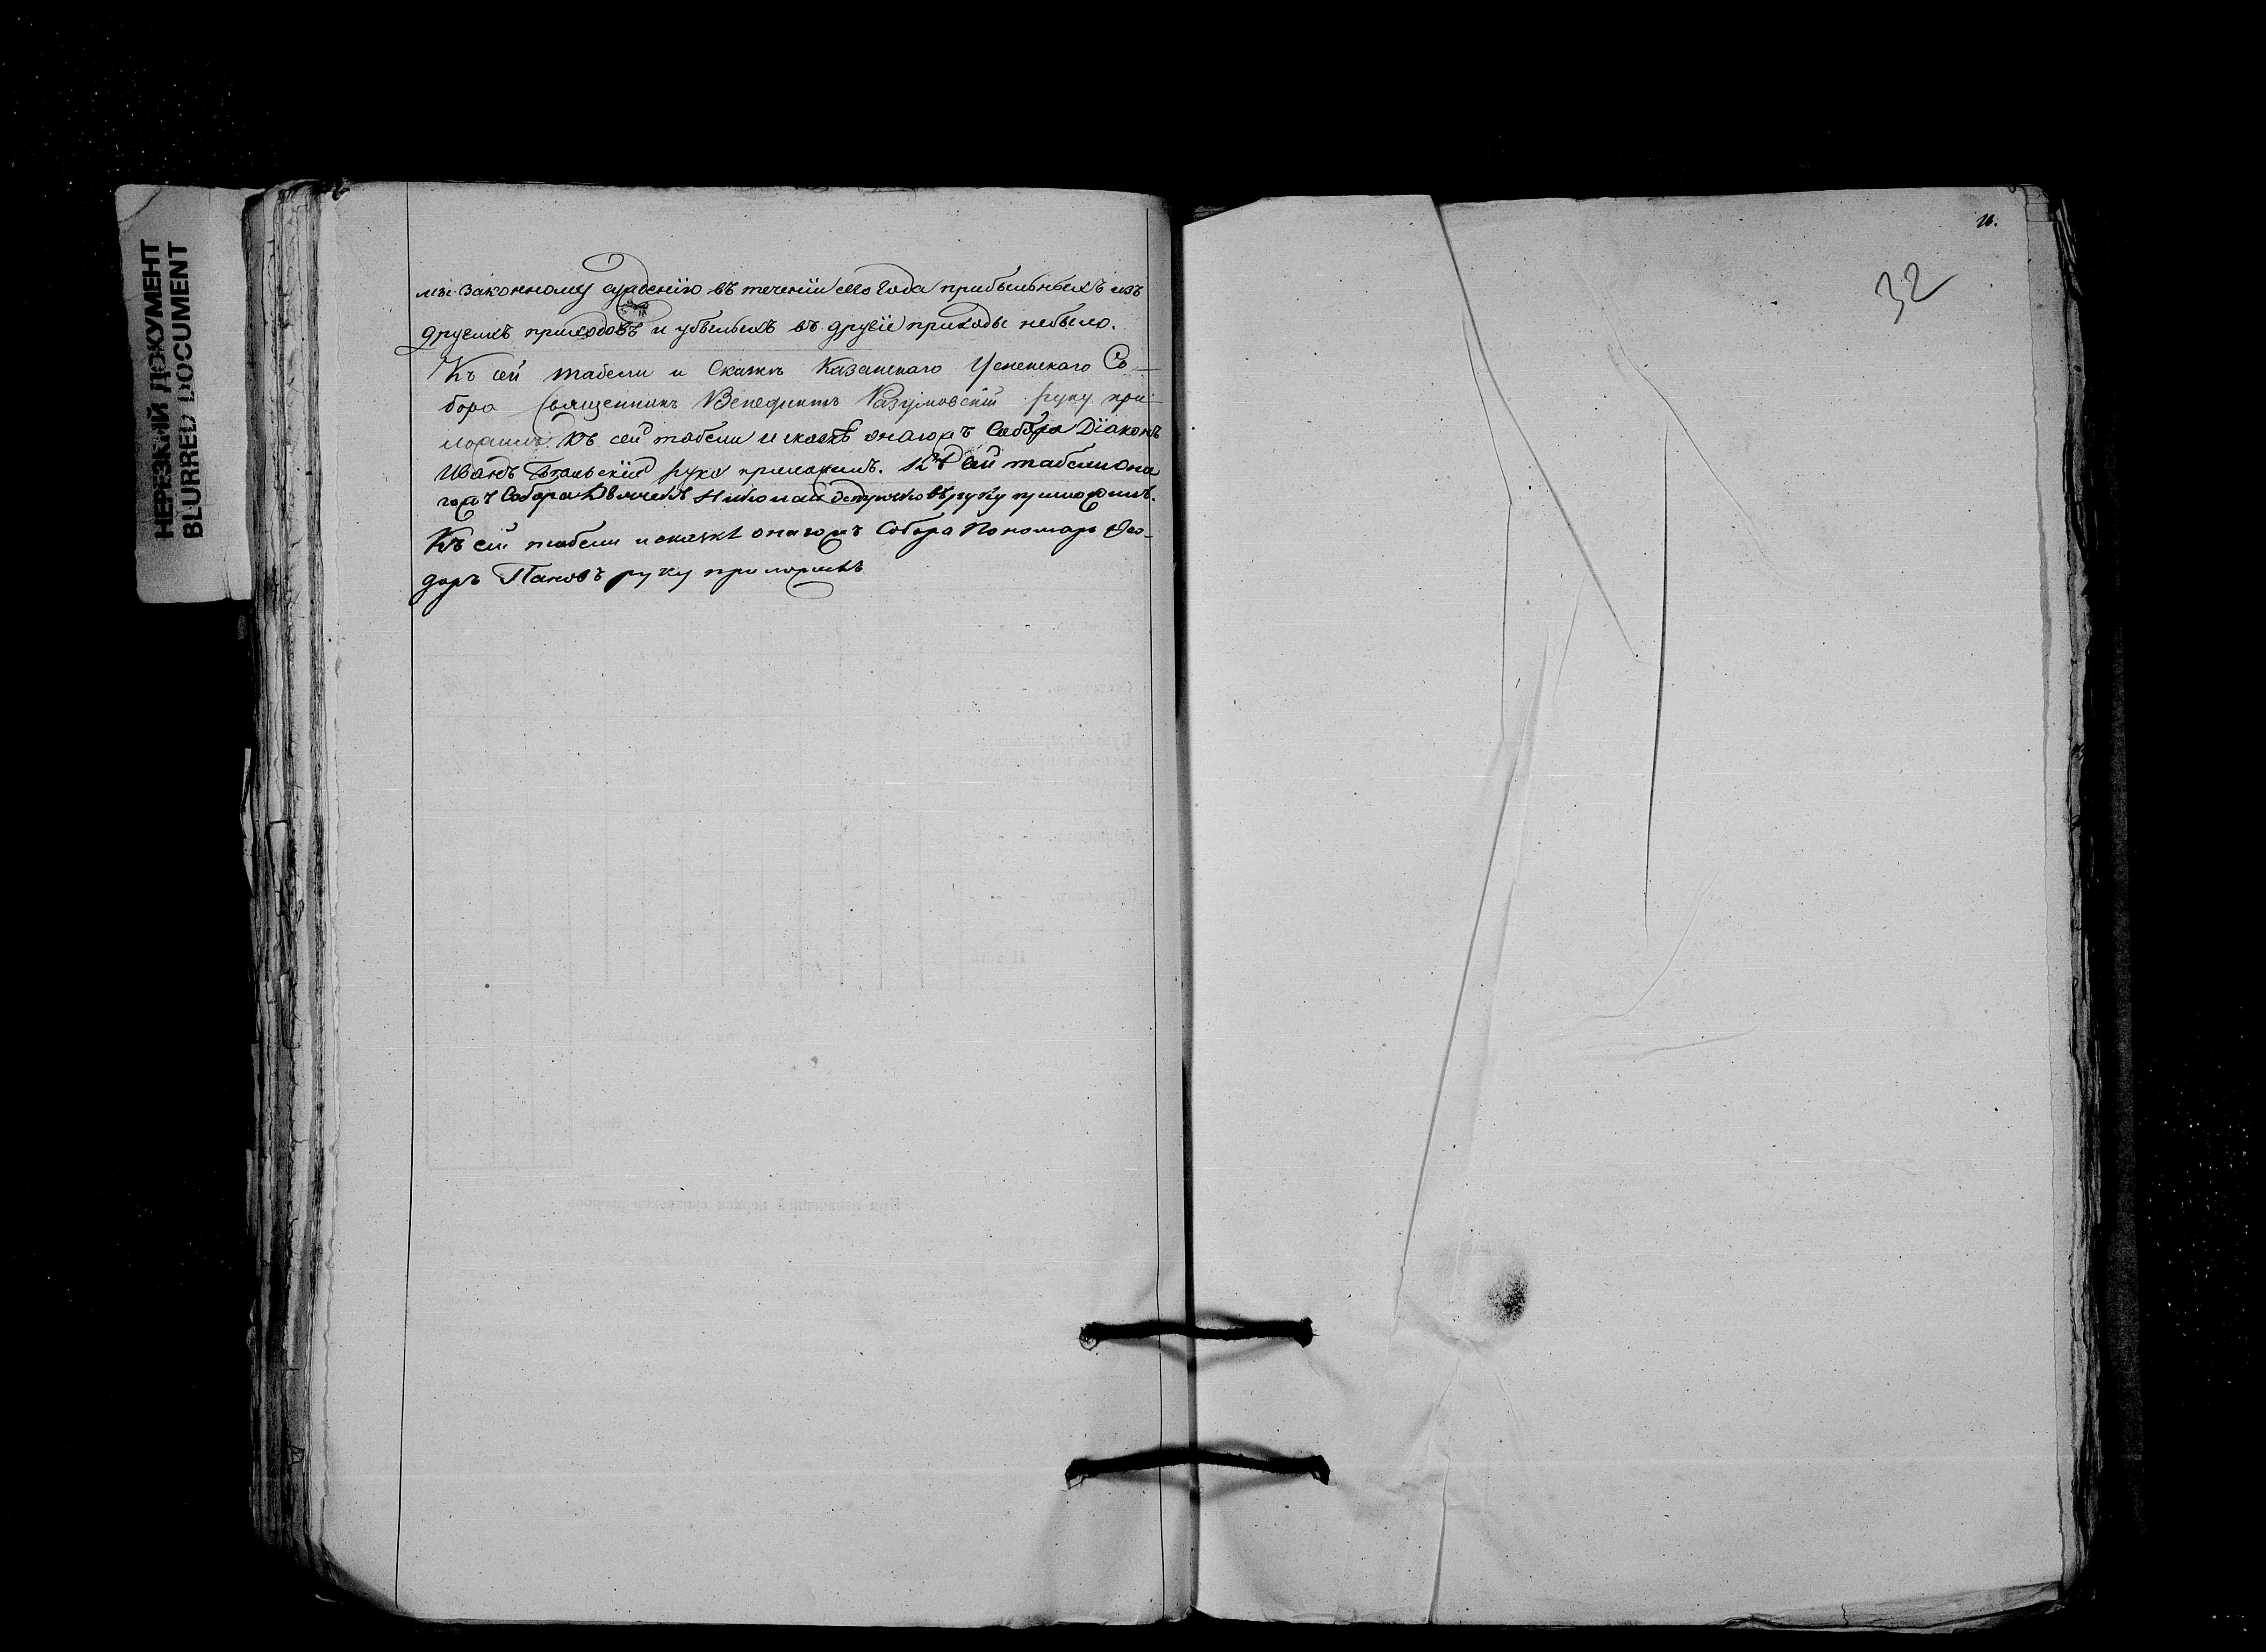 НЕРЕЗКИЙ ДОКУМЕНТ
BLURRED DOCUMENT
мы законному сужденію въ теченіи сего года прибыльныхъ изъ
другихъ приходовъ и убылыхъ въ другіе приходы небыло.
Къ сей табели и Сказкѣ Казанскаго Успенскаго Со-
бора Священникъ Венедиктъ Разумовскій руку при-
ложилъ Къ сей табели и сказкѣ онагожъ Собора Діаконъ
Иванъ руку приложилъ. Къ сей табели она
гожъ Собора Дьячекъ Николай руку приложилъ.
Къ сей табели и сказкѣ онагожъ Собора Пономарь Ѳео-
доръ Пановъ руку приложилъ
32